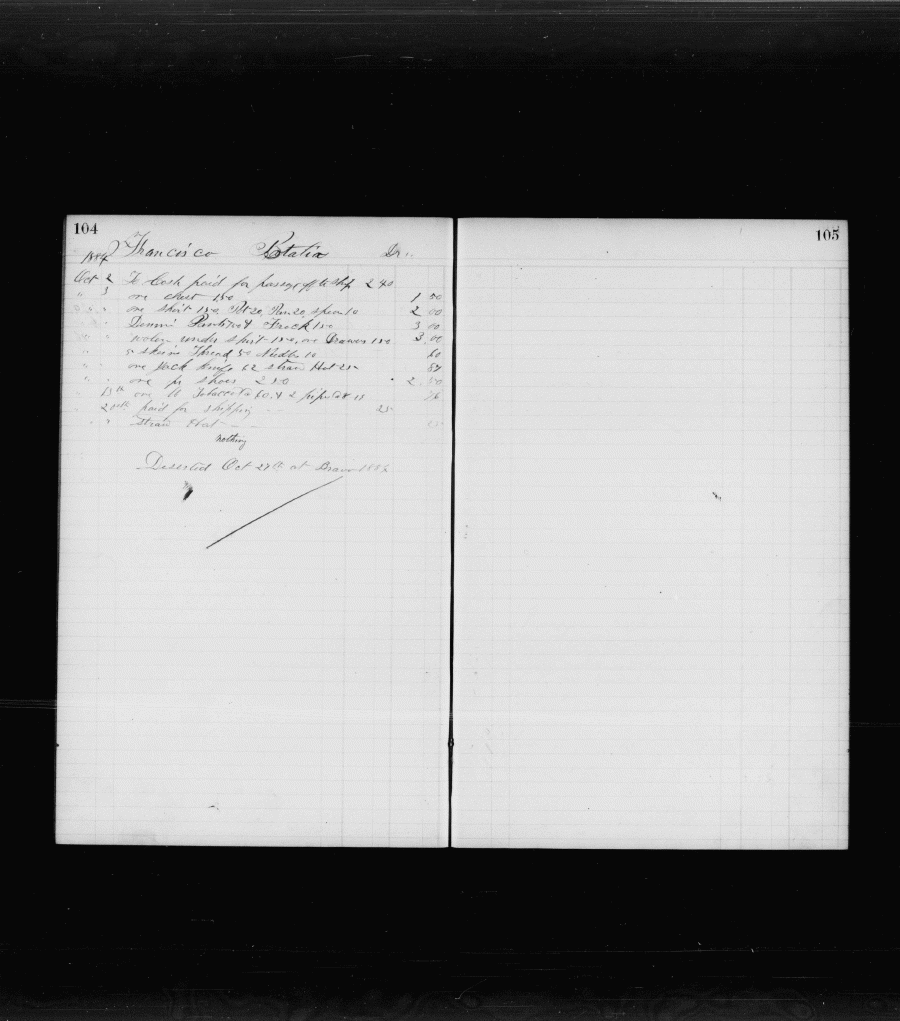 104
105
1887 Francisco Dr.
Oct 2 To Cash paid for passage to Ship 2 40
" 3 one chest 150 1 50
" " one shirt 150, Pot 20, Pan 20, spoon 10 2 00
" " 150 Frock 150 3 00
" " under shirt 150, one Drawers 150 3 00
" " 5 skeins Thread 50 Needles 10 60
" " one Jack Knife 62 straw Hat 25 87
" " one pr shoes 250 2 50
" 13th one lb Tobacco 60, 76
" 20th paid for shipping 25
" " Straw Hat
nothing
Deserted Oct 27th at